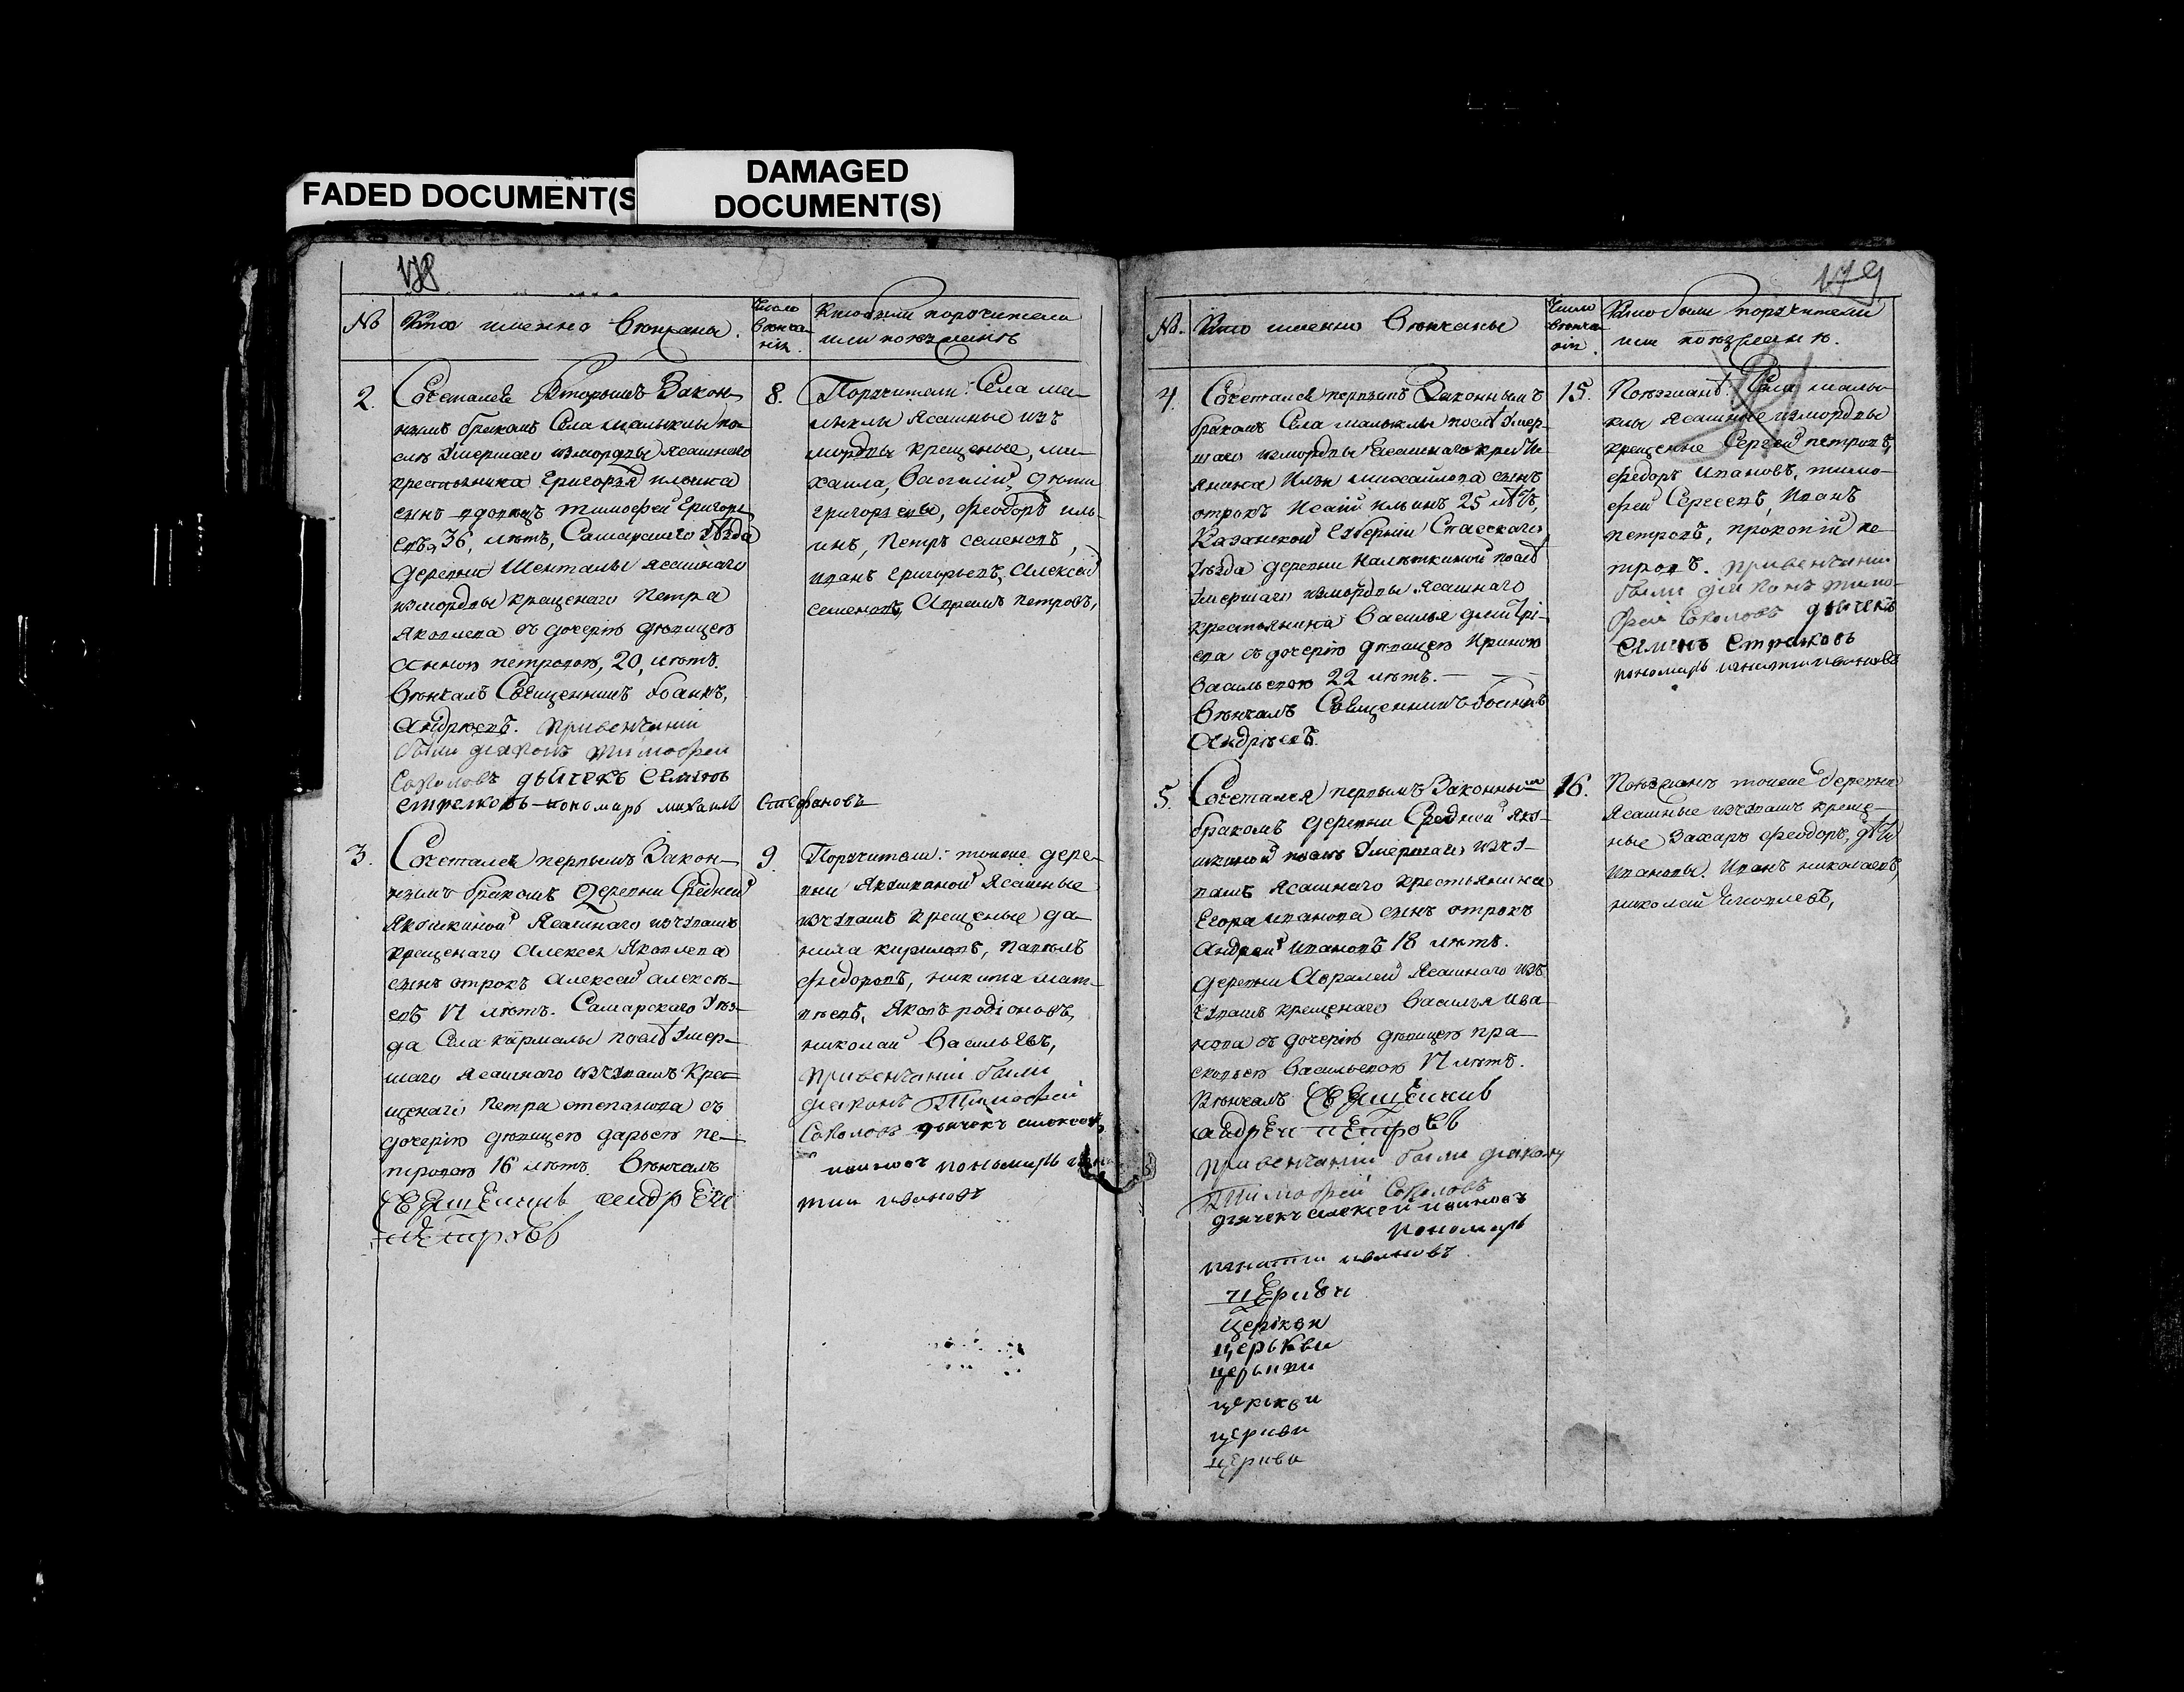 FADED DOCUMENT(S
DAMAGED
DOCUMENT(S)
178
№ Кто именно Венчаны.
Число
венча-
нія.
Кто были поручители
или поезжанѣ
2. Сочетался Вторымъ Закон-
нымъ бракомъ Села малыклы по-
слѣ умершаго измордвы Ясашнаго
крестьянина Григорья ильина
сынъ вдовецъ Тимофей Григорь-
евъ, 36, лѣтъ, Самарскаго уѣзда
Деревни Шенталы ясашнаго
измордвы крещенаго Петра
Яковлева съ дочерію дѣвицею
Анною петровою, 20, лѣтъ.
Вѣнчалъ Священникъ Іоаннъ,
Андрѣевъ. привенчаніи
были діаконъ тимофеи
Соколовъ дьячекъ семіонъ
стрелковъ пономарь михаилъ Стефановъ
8. Поручители: Села ма-
лыклы Ясашные изъ
мордвы крещеные, ми-
хаила, Василій, дѣти
григорьевы, феодоръ иль-
инъ, Петръ семеновъ,
иванъ григорьевъ, Алексей
семеновъ, Авраамъ петровъ,
3. Сочетался первымъ Закон-
нымъ бракомъ Деревни Средней
Якушкиной Ясашнаго изчувашъ
крещенаго Алексея Яковлева
сынъ отрокъ Алексей алексѣ-
евъ 17 лѣтъ. Самарскаго уѣз-
да Села кармалы послѣ умер-
шаго ясашнаго изчувашъ Кре-
щенаго Петра степанова съ
дочерію дѣвицею дарьею пе-
тровою 16 лѣтъ. Вѣнчалъ
свяшенникъ андреи
петровъ
9. Поручители: тоиже дере-
вни Якушкиной Ясашные
изчувашъ крещеные да-
нила кириловъ, павелъ
федоровъ, никита мат-
вѣевъ, Яковъ родіоновъ,
николай Васильевъ,
привенчаніи были
діаконъ Тимофей
Соколовъ дьячекъ алексей
ивановъ пономарь игна-
тии ивановъ
179
№. Кто именно Вѣнчаны
Число
венча-
нія.
Кто были поручители
или поезжанѣ.
4. Сочетался первымъ Законнымъ
бракомъ Села малыклы послѣ умер-
шаго измордвы Ясашнаго кресть-
янина Ильи михайлова сынъ
отрокъ Исаій ильинъ 25 лѣтъ,
Казанской Губерніи Спасскаго
уѣзда деревни Налѣткиной послѣ
умершаго измордвы Ясашнаго
крестьянина Василья дмитрі-
ева съ дочерію дѣвицею Ириною
Васильевою 22 лѣтъ.
Вѣнчалъ Священникъ Іоаннъ
Андрѣевъ.
15. Поезжанѣ: Села малы-
клы Ясашные измордвы
крещеные Сергей петровъ,
федоръ ивановъ, тимо-
фей Сергеевъ, Иванъ
петровъ, прокопій пе-
тровъ. привенчании
были діаконъ тимо-
фей Соколовъ дьячекъ
семенъ стрелковъ
пономарь игнатии ивановъ
5. Сочетался первымъ Законным
бракомъ деревни Средней Яку-
шкиной послѣ умершаго изчу-
вашъ ясашнаго крестьянина
Егора иванова сынъ отрокъ
Андрей ивановъ 18 лѣтъ.
деревни Абралей Ясашнаго изъ
чувашъ крещенаго Василья ива-
нова съ дочерію дѣвицею пра-
сковьею Васильевою 17 лѣтъ.
Вѣнчалъ свяшенникъ
андреи петровъ
привенчаніи были діаконъ
Тимофей Соколовъ
дьячекъ алексеи ивановъ
пономарь
игнатии ивановъ
церкви
церкви
церькви
церькви
церкви
церкви
церкви
16. Поезжанѣ тоиже деревни
Ясашные изчувашъ креще-
ные Захаръ феодоръ, дѣти
ивановы. Иванъ николаевъ,
николай